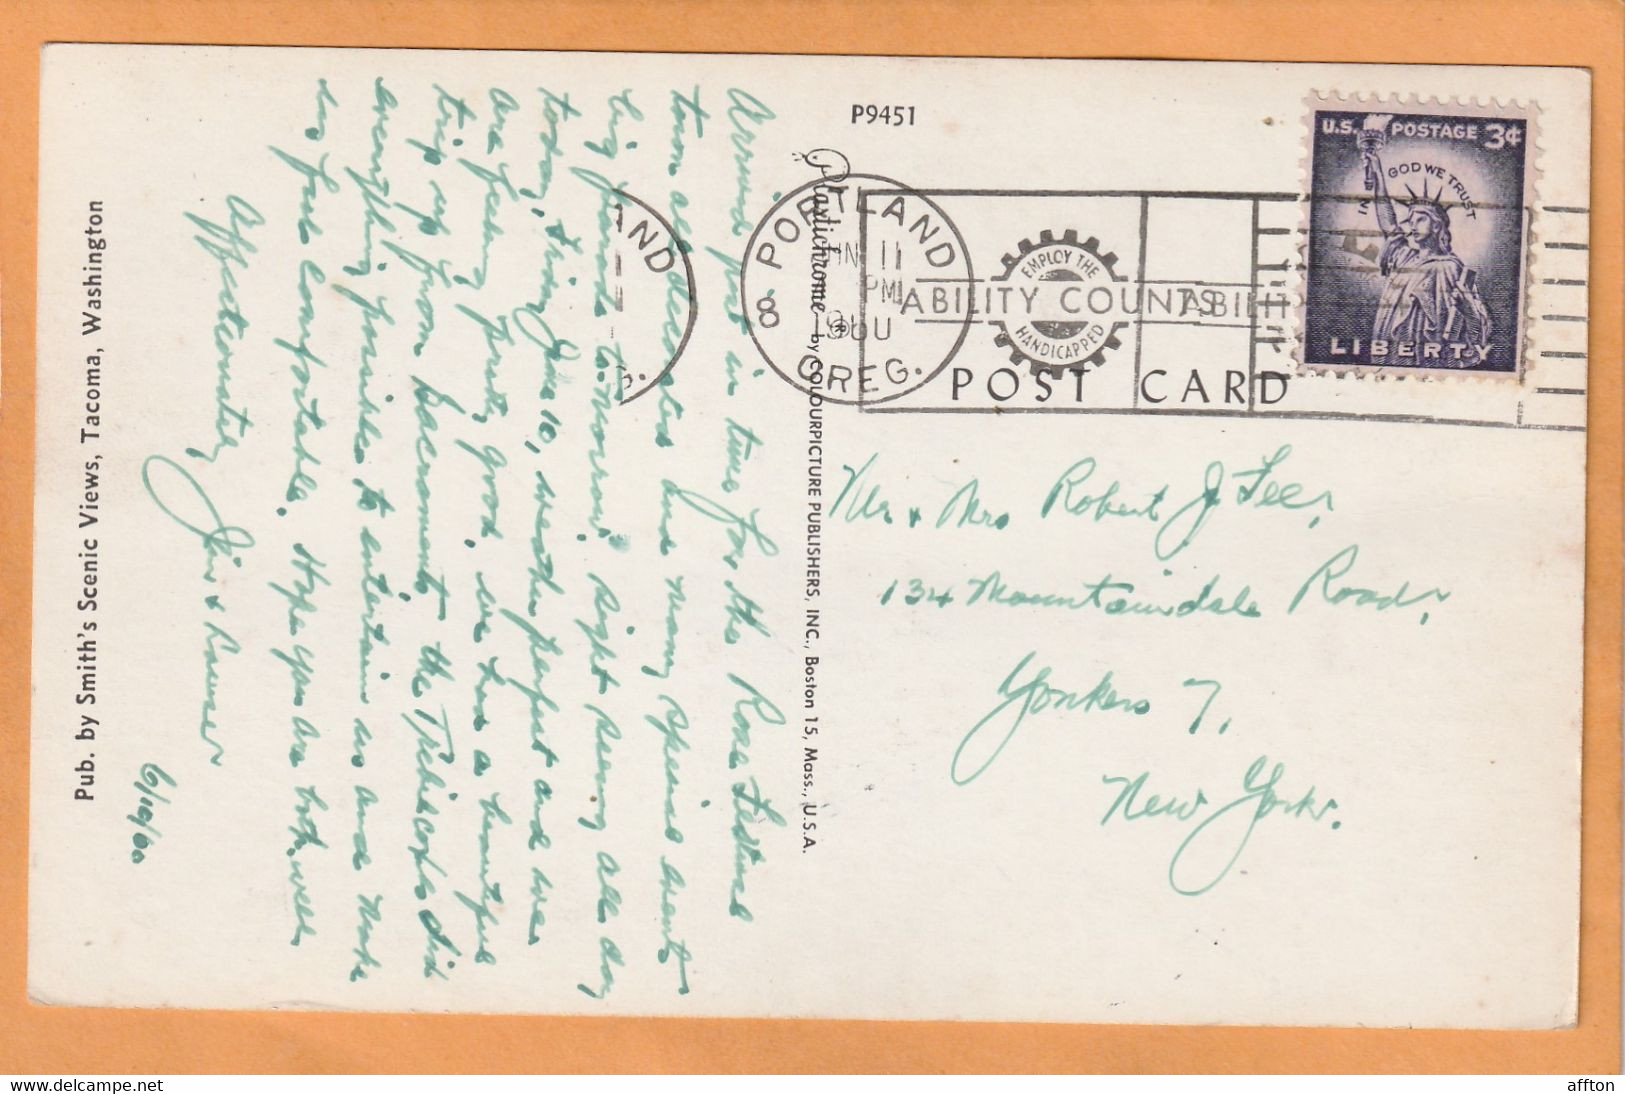 P9451
Plastichrome by COLOURPICTURE PUBLISHERS, INC., Boston 15, Mass., U.S.A.
Pub. by Smith's Scenic Views, Tacoma, Washington
U.S. POSTAGE 3¢
IN GOD WE TRUST
LIBERTY
PORTLAND
JUN 11
PM
1960
8
OREG.
AND
G.
EMPLOY THE
ABILITY COUNTS ABILIT
HANDICAPPED
POST CARD
Arrived just in time for the Rose Festival
town all decorated and many special events
big parade tomorrow. Sight seeing all day
today, Friday June 10, weather perfect and we
are feeling pretty good. We had a beautiful
trip up from Sacramento the did
everything possible to entertain us and make
us feel comfortable. Hope you are both well
Affectionately
Jim &
6/10/60
Mr & Mrs Robert J Feer,
134 Mountaindale Road,
Yonkers 7,
New York.
affton